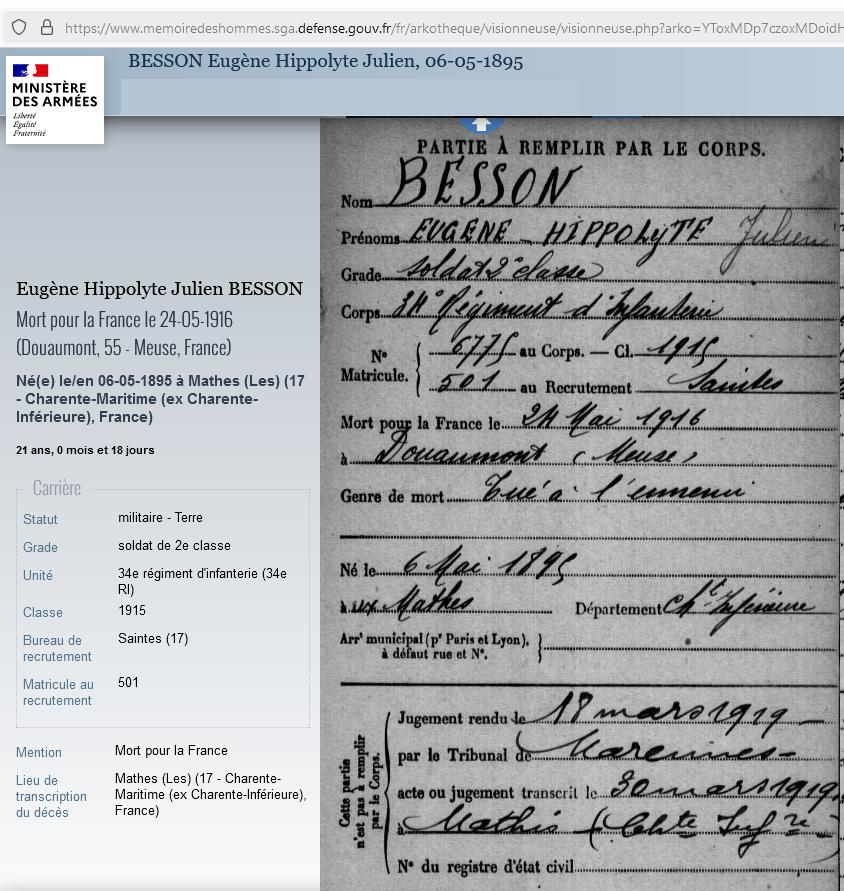 https://www.memoiredeshommes.sga.defense.gouv.fr/fr/arkotheque/visionneuse/visionneuse.php?arko=YToxMDp7czoxMDoidH
BESSON Eugène Hippolyte Julien, 06-05-1895
MINISTÈRE
DES ARMÉES
Liberté
Égalité
Fraternité
Eugène Hippolyte Julien BESSON
Mort pour la France le 24-05-1916
(Douaumont, 55 - Meuse, France)
Né(e) le/en 06-05-1895 à Mathes (Les) (17
- Charente-Maritime (ex Charente-
Inférieure), France)
21 ans, 0 mois et 18 jours
Carrière
Statut militaire - Terre
Grade soldat de 2e classe
Unité 34e régiment d'infanterie (34e
RI)
Classe 1915
Bureau de
recrutement Saintes (17)
Matricule au
recrutement 501
Mention Mort pour la France
Lieu de
transcription
du décès Mathes (Les) (17 - Charente-
Maritime (ex Charente-Inférieure),
France)
PARTIE À REMPLIR PAR LE CORPS.
Nom BESSON
Prénoms EUGÈNE _ HIPPOLYTE Julien
Grade soldat 2e classe
Corps 34e Régiment d'Infanterie
N°
Matricule.
6775 au Corps. — Cl. 1915
501 au Recrutement Saintes
Mort pour la France le 24 Mai 1916
à Douaumont (Meuse)
Genre de mort Tué à l'ennemi
Né le 6 Mai 1895
à ux Mathes Département Ch.te Inférieure
Arrt municipal (pr Paris et Lyon),
à défaut rue et N°.
Cette partie
n'est pas à remplir
par le Corps.
Jugement rendu le 18 mars 1919
par le Tribunal de Marennes
acte ou jugement transcrit le 30 mars 1919
à Mathis (Chte Infre
N° du registre d'état civil